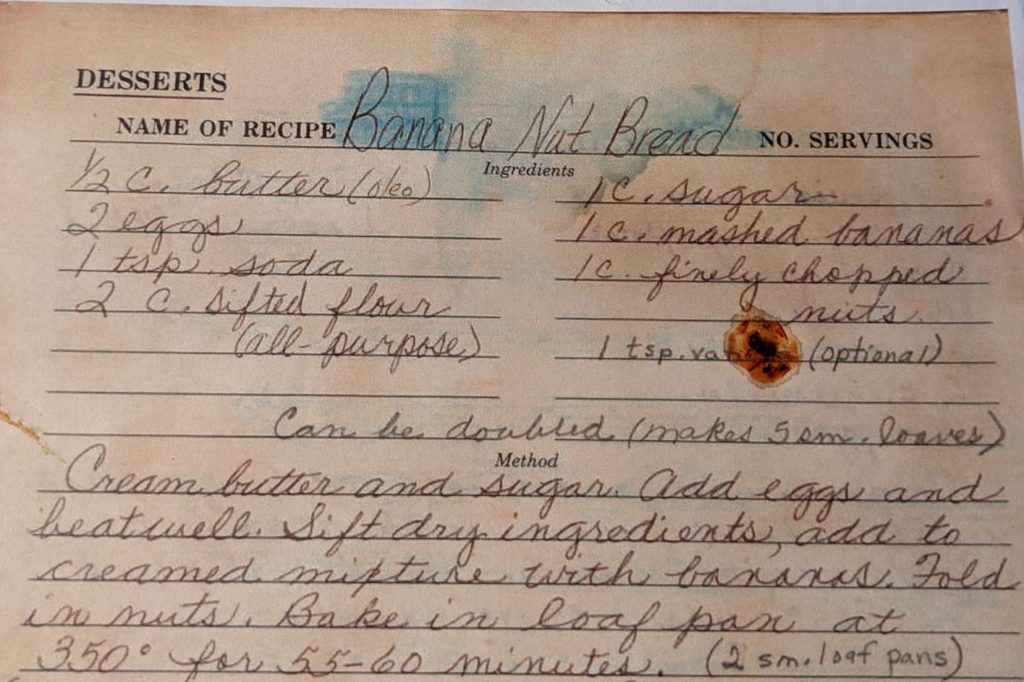 DESSERTS
NAME OF RECIPE Banana Nut Bread NO. SERVINGS
Ingredients
1/2 c. butter (oleo)
2 eggs
1 tsp. soda
2 c. sifted flour
(all-purpose)
1 c. sugar
1 c. mashed bananas
1 c. finely chopped
nuts.
1 tsp. (optional)
Can be doubled (makes 5 sm. loaves)
Method
Cream butter and sugar. Add eggs and
beat well. Sift dry ingredients, add to
creamed mixture with bananas. Fold
in nuts. Bake in loaf pan at
350° for 55-60 minutes. (2 sm. loaf pans)